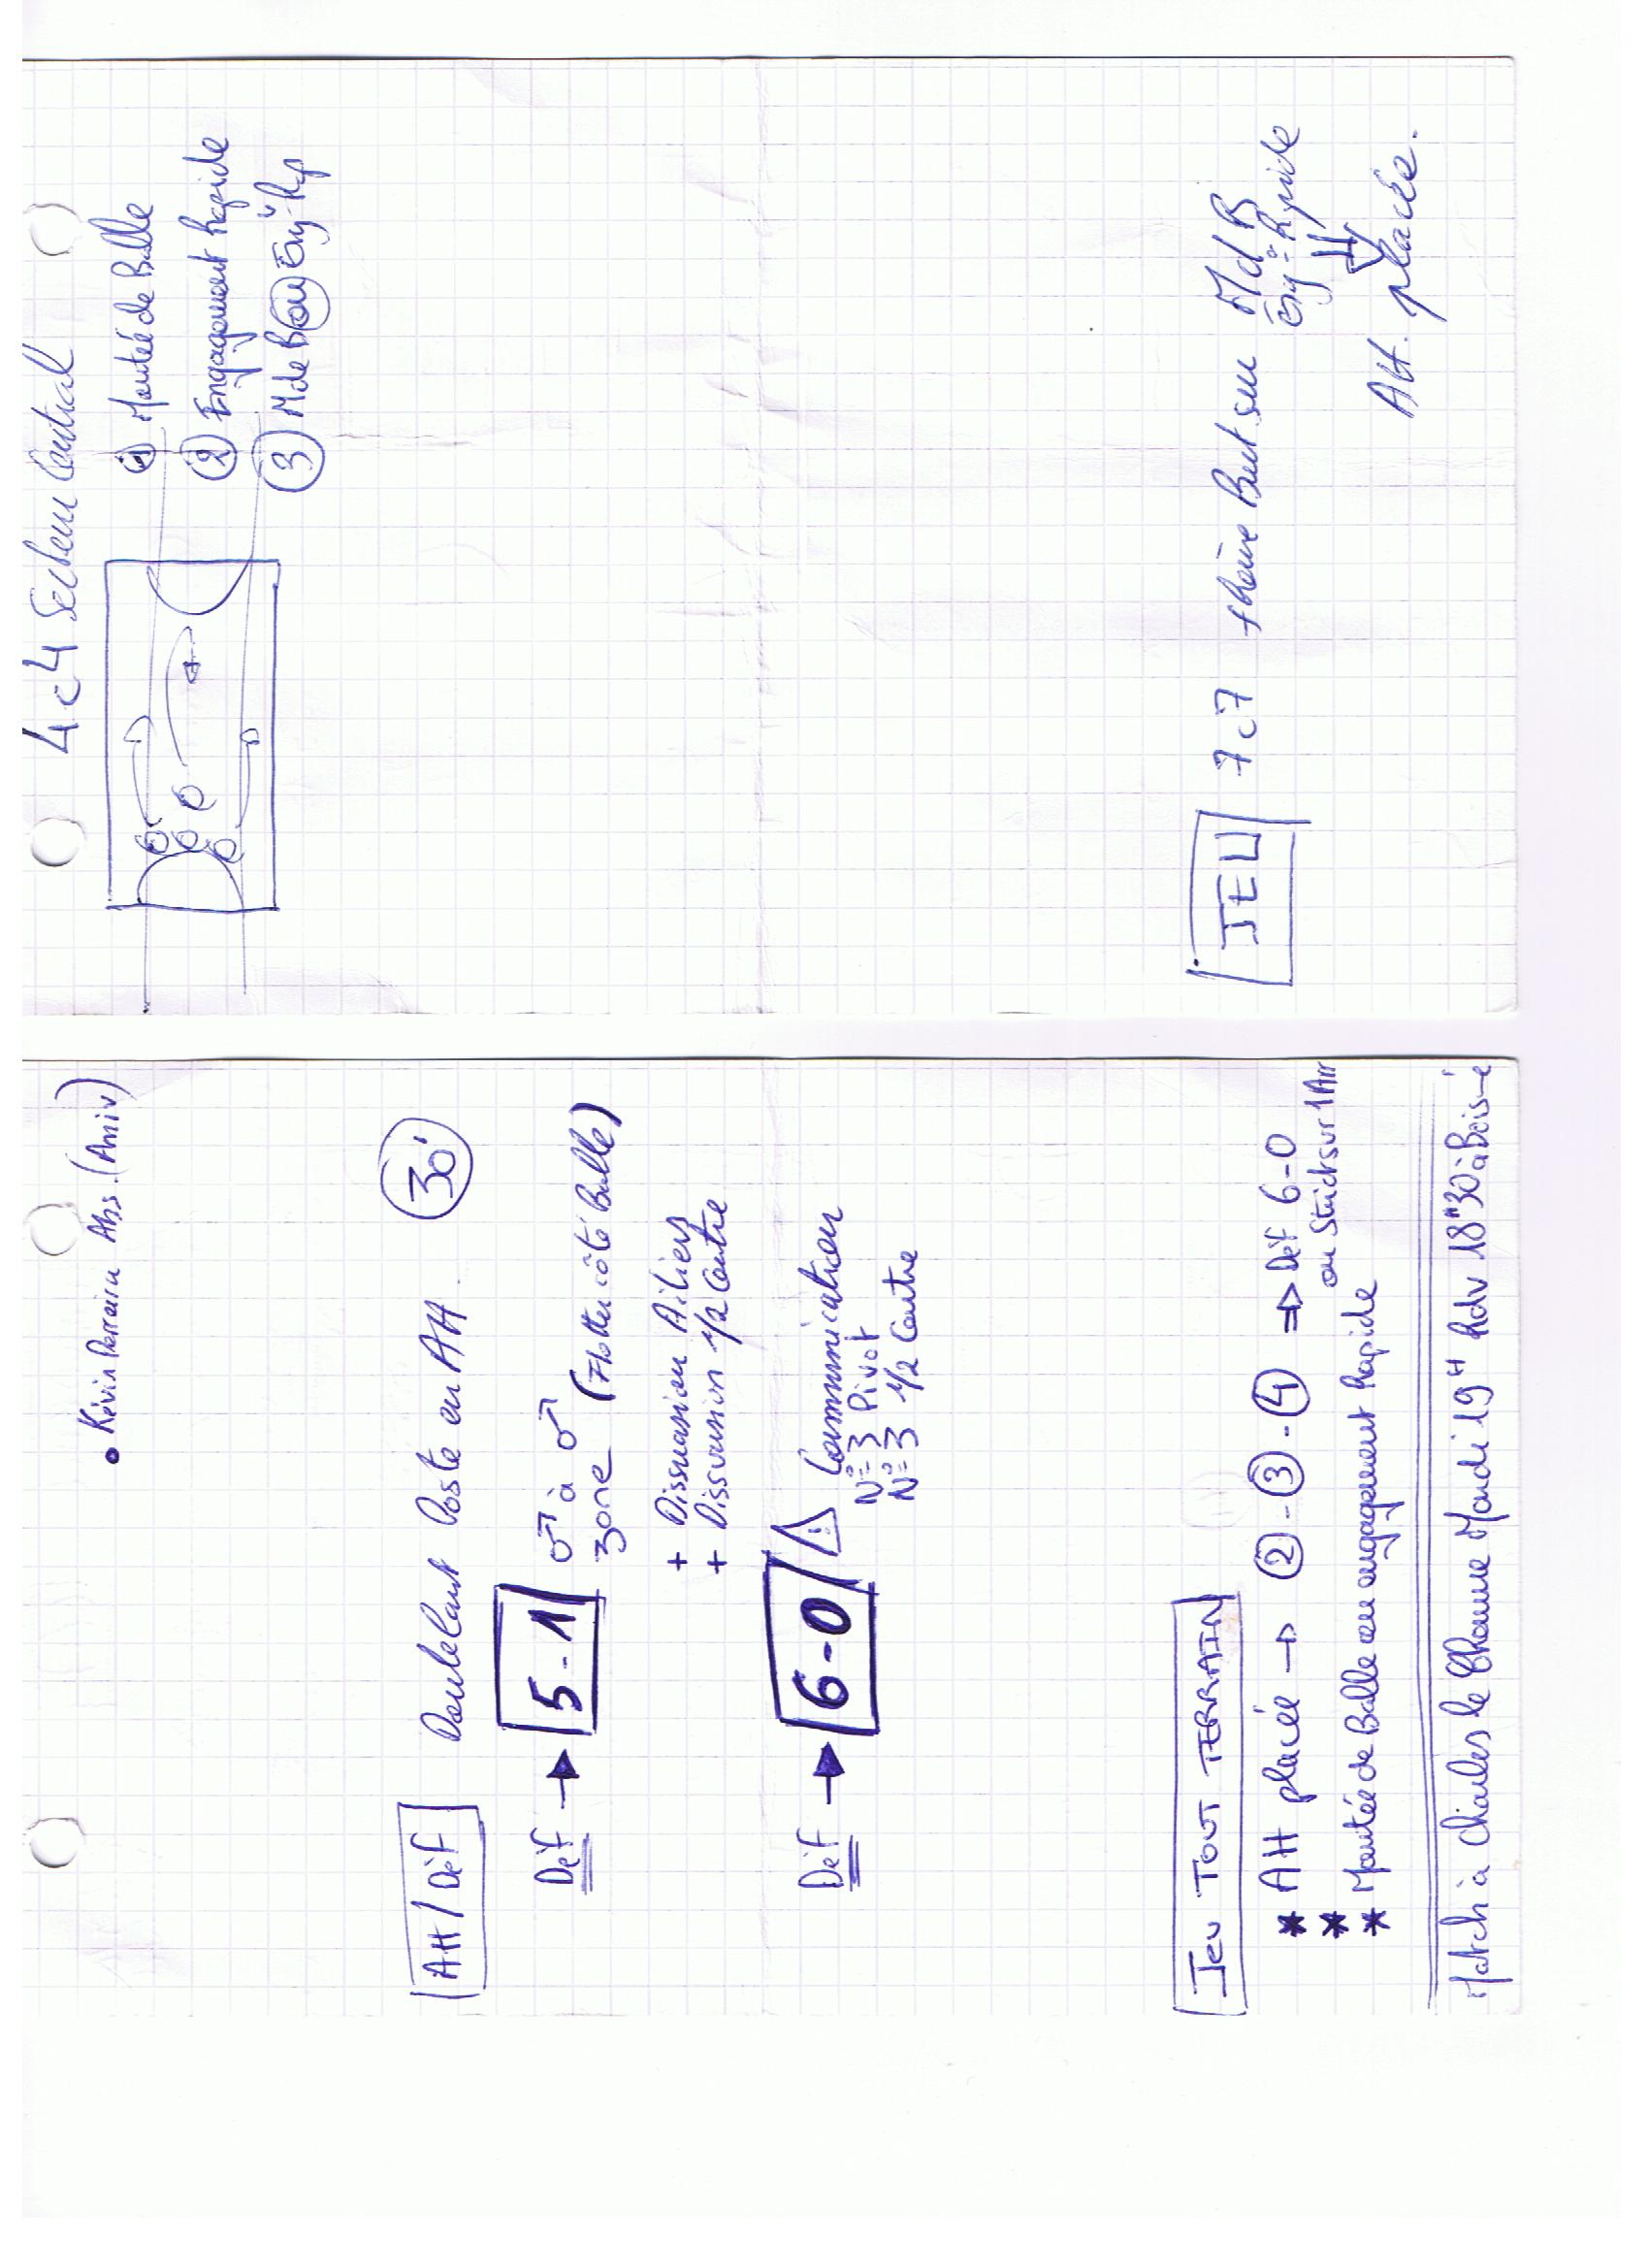 • Kévin Perreira Abs. (Aniv)
AH / Déf Doublant Poste en AH. 30'
Déf → 5-1 ♂ à ♂
zone (Flotteur côté Balle)
+ Dissuasion Ailiers
+ Dissuasion 1/2 Centre
Déf → 6-0 ⚠ Communication
N°=3 Pivot
N°=3 1/2 Centre
JEU TOUT TERRAIN
* AH placée → ② - ③ - ④ ⇒ Déf 6-0
* ou Strict sur 1 Arr
* Montée de Balle ou engagement Rapide
Match à Charles le Chauve Mardi 19H Rdv 18H30 à Bois-é
4c4 Secteur Central
① Montée de Balle
② Engagement Rapide
③ M de B ou Eng-Rap
JEU 7c7 thème But sur M d B
Eng° Rapide
⇓
AH. placée.